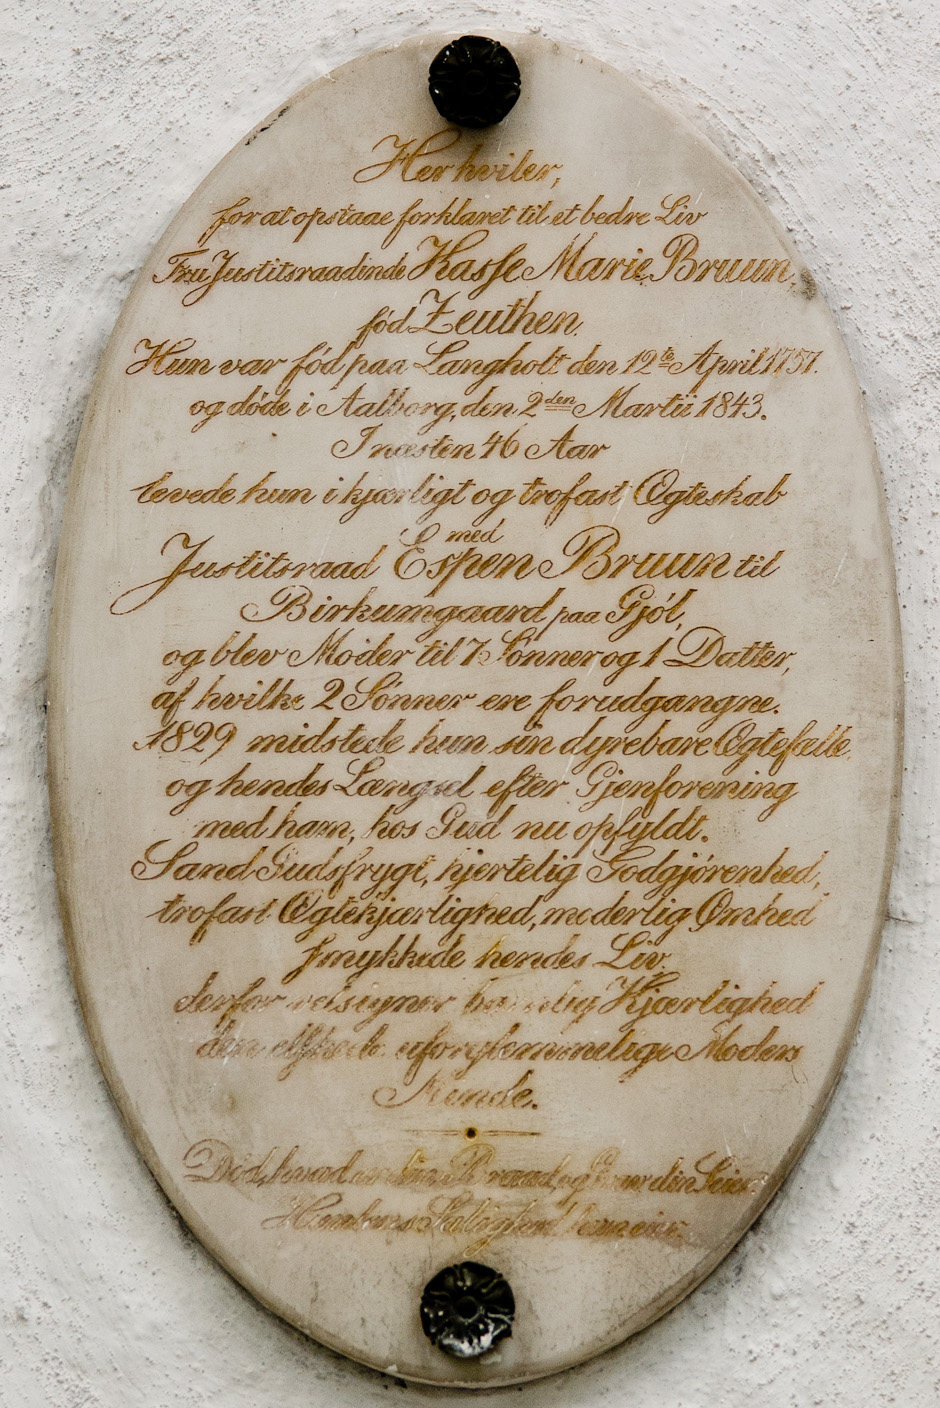 Her hviler,
for at opstaae forklaret til et bedre Liv
Fru Justitsraadinde Hasse Marie Bruun,
fød Zeuthen.
Hun var fød paa Langholt den 12te April 1757.
og døde i Aalborg, den 2den Martii 1843.
I næsten 46 Aar
levede hun i kjærligt og trofast Ægteskab
med
Justitsraad Espen Bruun til
Birkumgaard paa Gjøl,
og blev Moder til 7 Sønner og 1 Datter,
af hvilke 2 Sønner ere forudgangne.
1829 midstede hun sin dyrebare Ægtefælle
og hendes Længsel efter Gjenforening
med ham, hos Gud nu opfyldt.
Sand Gudsfrygt, hjertelig Godgjørenhed,
trofast Ægtekjærlighed, moderlig Ømhed
smykkede hendes Liv,
derfor velsigner barnlig Kjærlighed
den elskede uforglemmelige Moders
Minde.
Død, hvad er din Braad, og Grav din Seier
Himlens Salighed hun eier.